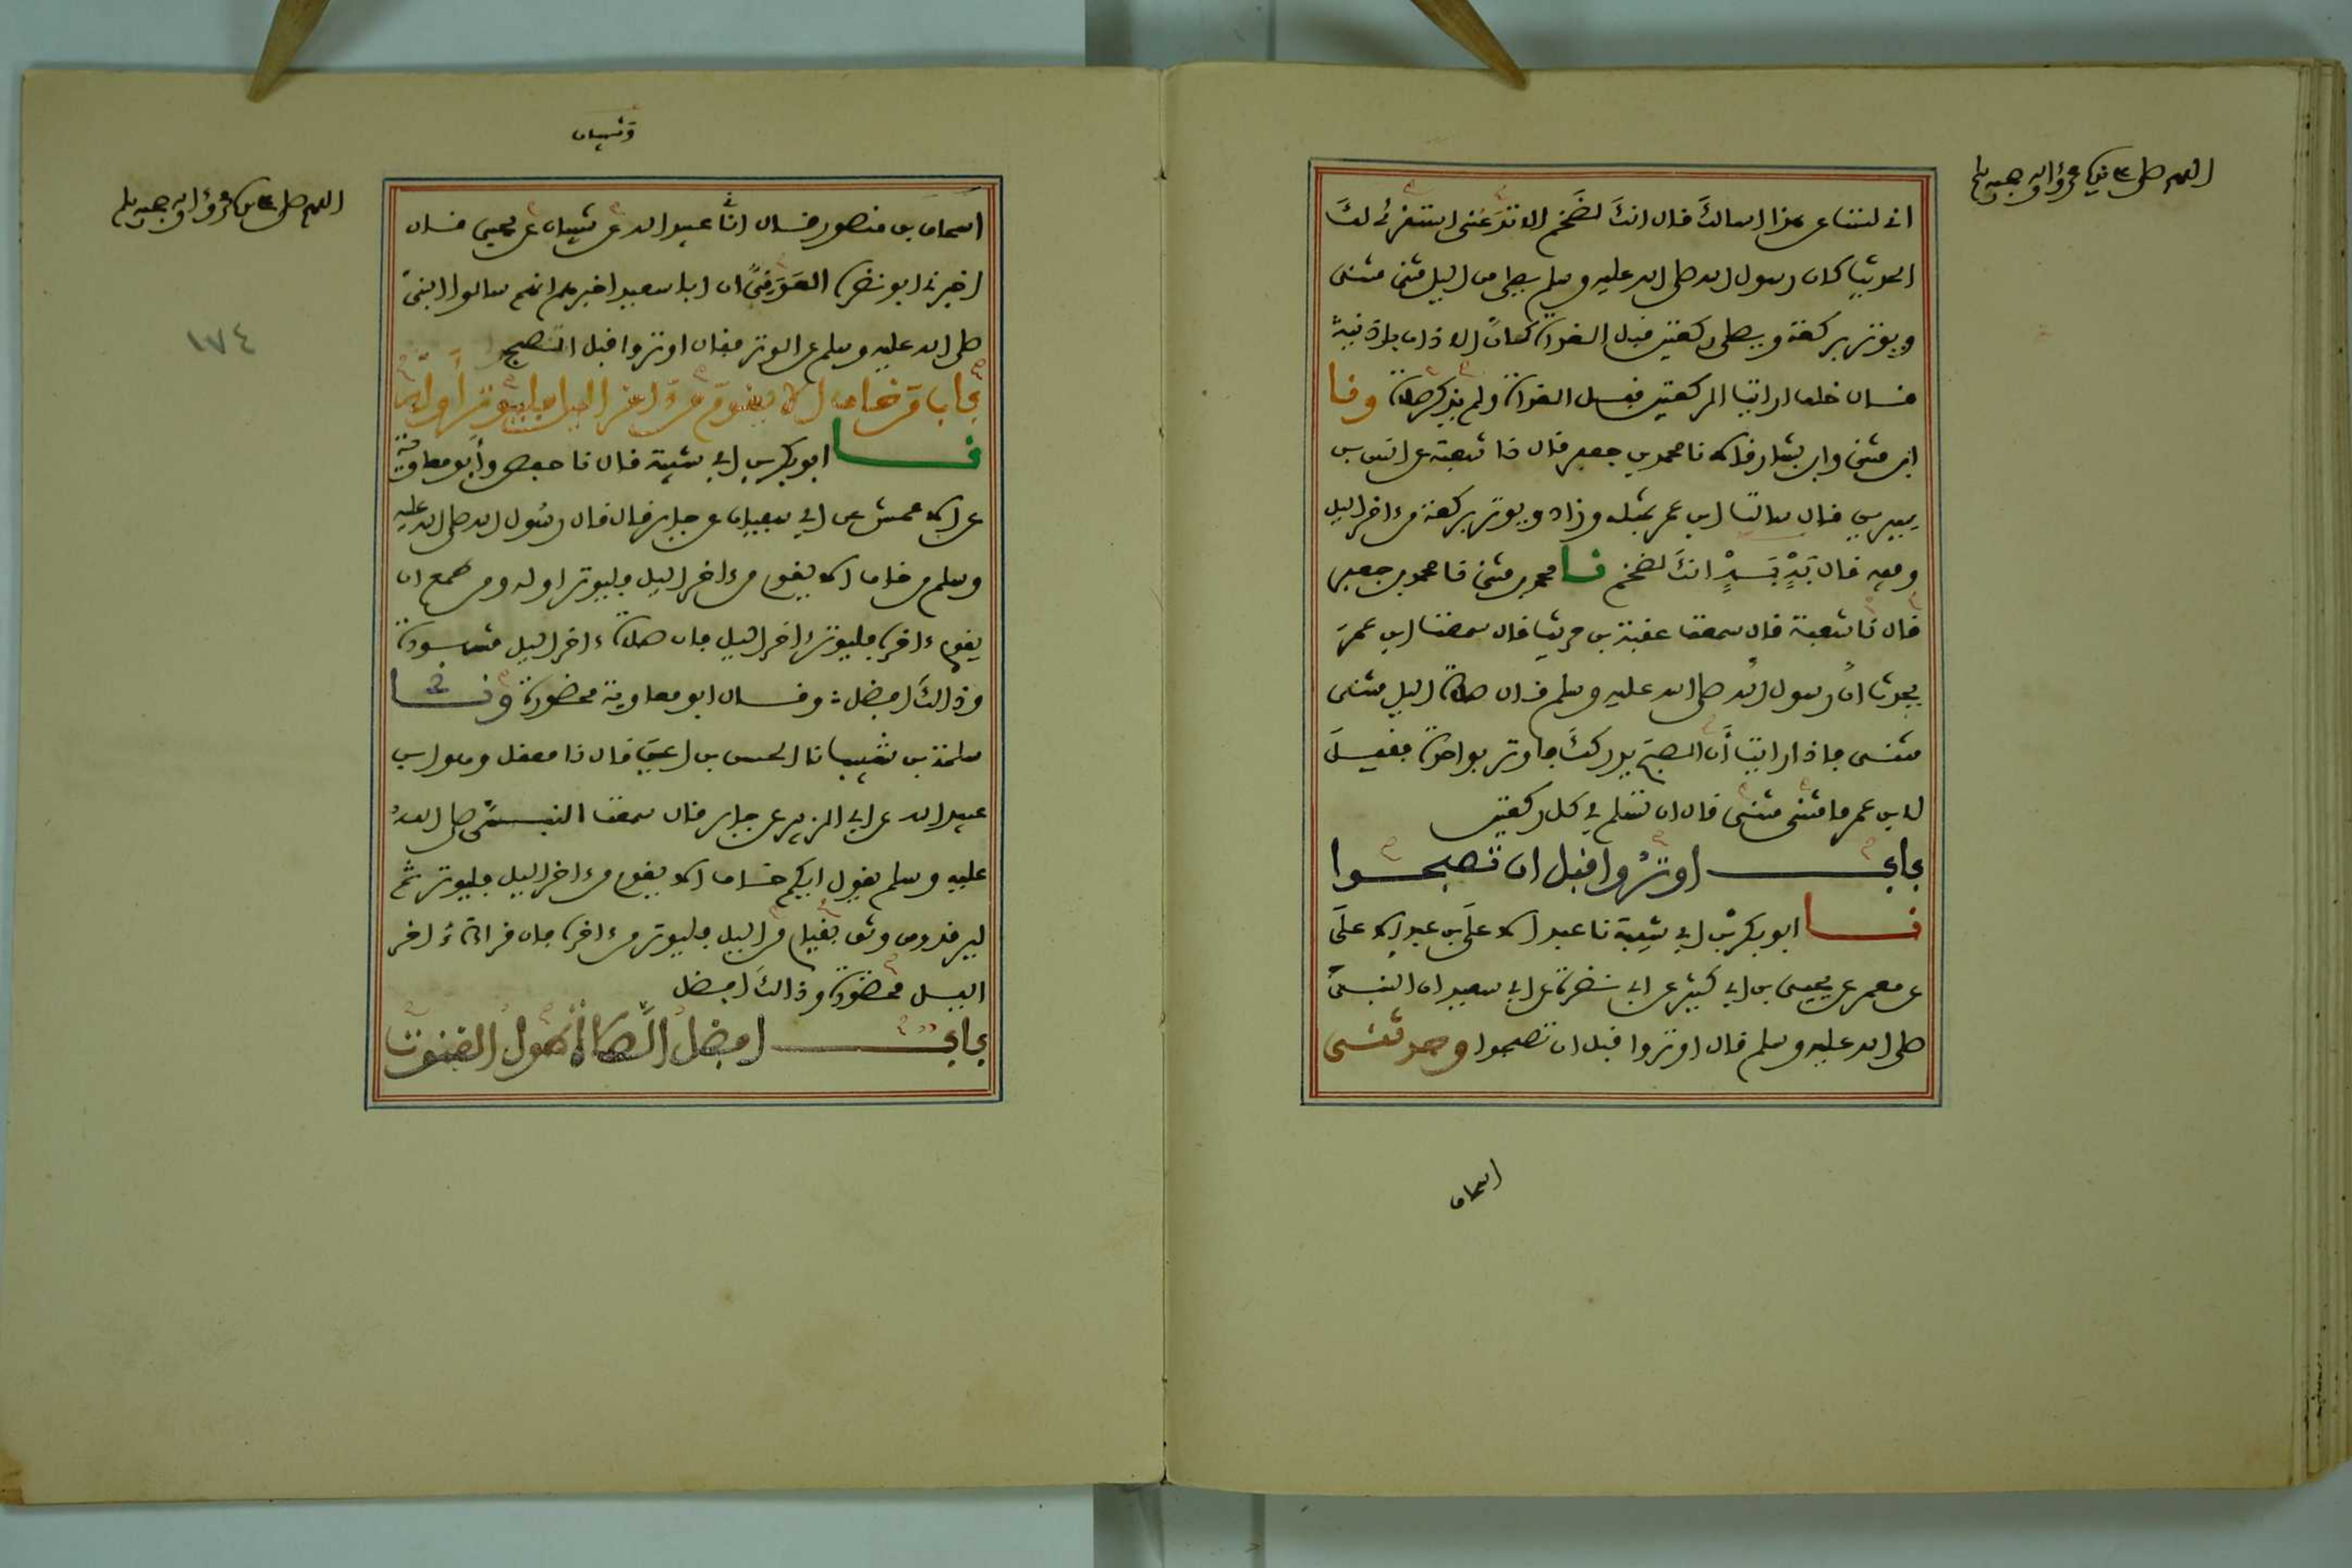 اللهم صل على سيدنا محمد وءاله وصحبه وسلم
اني لست عن هذا اسالك قال انك لضخم الا تدعني استقرئ لك
الحديث كان رسول الله صلى الله عليه وسلم يصلي من اليل مثنى مثنى
ويوتر بركعة ويصلي ركعتين قبل الغداة كان الاذان باذنيه
قال خلف ارايت الركعتين قبل الغداة ولم يذكر صلاة ونا
ابن مثنى وابن بشار قالا نا محمد بن جعفر قال نا شعبة عن انس بن
سيرين قال سالت ابن عمر بمثله وزاد ويوتر بركعة من ءاخر اليل
وفيه قال بَهْ بَهْ انك لضخم نا محمد بن مثنى نا محمد بن جعفر
قال نا شعبة قال سمعت عقبة بن حريث قال سمعت ابن عمر
يحدث ان رسول الله صلى الله عليه وسلم قال صلاة اليل مثنى
مثنى فاذا رايت أن الصبح يدركك فاوتر بواحدة فقيل
لابن عمر ما مثنى مثنى قال ان تسلم في كل ركعتين
باب اوتروا قبل ان تصبحوا
نا ابو بكر بن ابي شيبة نا عبد الاعلى بن عبد الاعلى
عن معمر عن يحيى بن ابي كثير عن ابي نضرة عن ابي سعيد ان النبي
صلى الله عليه وسلم قال اوتروا قبل ان تصبحوا وحدثنى
اسحاق
اللهم صل على سيدنا محمد وءاله وصحبه وسلم
١٧٤
اسحاق بن منصور قال انا عبيد الله عن شيبان عن يحيى قال
اخبرني ابو نضرة العَوَقيُّ ان ابا سعيد اخبرهم انهم سالوا النبي
صلى الله عليه وسلم عن الوتر فقال اوتروا قبل الصبح
باب من خاف الا يقوم من ءاخر اليل فليوتر أوله
نا ابو بكر بن ابي شيبة قال نا حفص وأبو معاوية
عن الاعمش عن ابي سفيان عن جابر قال قال رسول الله صلى الله عليه
وسلم من خاف الا يقوم من ءاخر اليل فليوتر اوله ومن طمع ان
يقوم ءاخره فليوتر ءاخر اليل فان صلاة ءاخر اليل مشهودة
وذالك افضل: وقال ابو معاوية محضورة ونا
سلمة بن شبيب نا الحسن بن اعين قال نا معقل وهو ابن
عبيد الله عن ابي الزبير عن جابر قال سمعت النبي صلى الله
عليه وسلم يقول ايكم خاف الا يقوم من ءاخر اليل فليوتر ثم
ليرقد ومن وثق بقيام من اليل فليوتر من ءاخره فان قراءة ءاخر
اليل محضورة وذالك افضل
باب افضل الصلاة طول القنوت